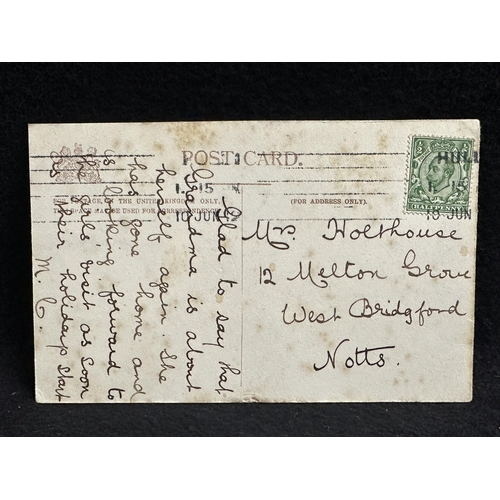 POST CARD.
FOR POSTAGE IN THE UNITED KINGDOM ONLY,
THIS SPACE MAY BE USED FOR CORRESPONDENCE.
(FOR ADDRESS ONLY).
HULL
1. 15
10 JUN
1. 15
10 JUN
HALFPENNY
Glad to say that
Grandma is about
herself again. She
has gone home and
is looking forward to
the girls visit as soon
as their holidays start
M. C.
Mrs. Holthouse
12 Melton Grove
West Bridgford
Notts.